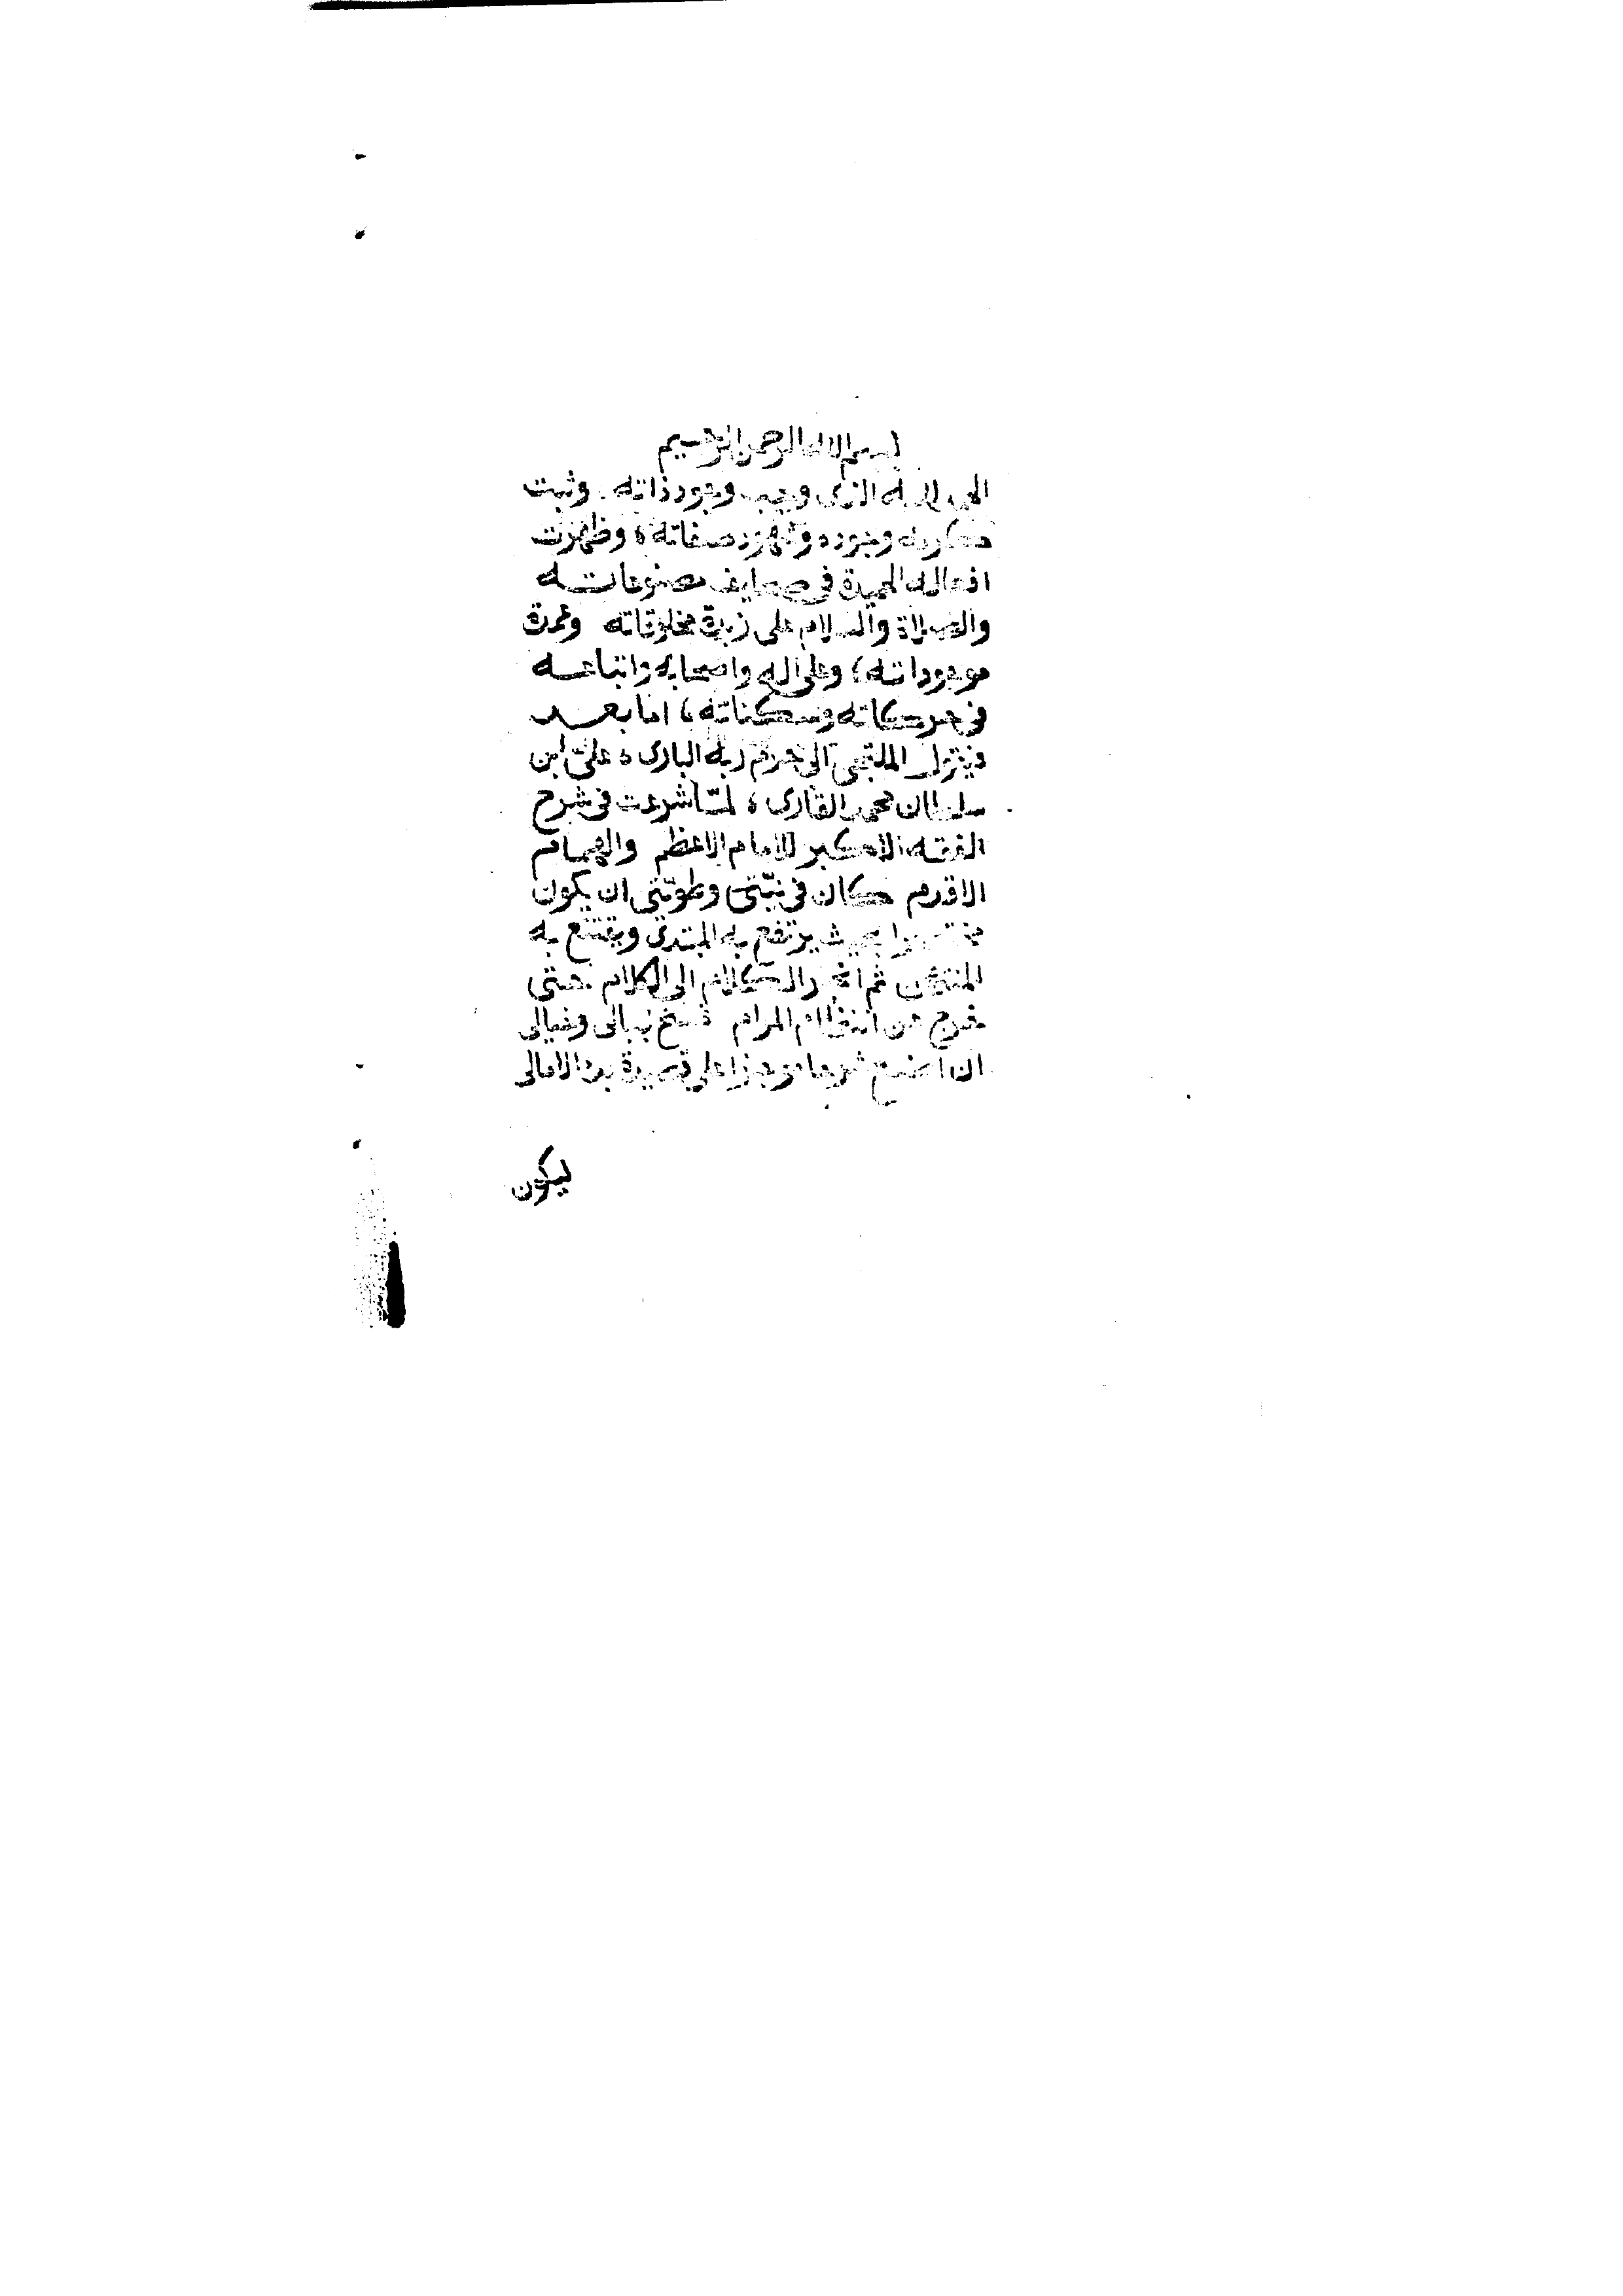 بسم الله الرحمن الرحيم
الحمد لله الذى وجب وجود ذاته وثبت
كرمه وجوده وشهود صفاته ، وظهرت
افعاله الحميدة فى صحايف مصنوعاته
والصلاة والسلام على زبدة مخلوقاته وعمدة
موجوداته ، وعلى اله واصحابه واتباعه
فى حركاته وسكناته ، اما بعد
فيقول الملتجى الى حرم ربه البارى ، على ابن
سلطان محمد القارى ، لمّا شرعت فى شرح
الفقه الاكبر للامام الاعظم والهمام
الاقدم كان فى نيّتى وطويّتى ان يكون
مختصرا بحيث يرتفع به المبتدى ويقتنع به
المنتهى ثم انجر الكلام الى الكلام حتى
خرج عن انتظام المرام فسنح ببالى وخيالى
ان اصنع شرحا موجزا على قصيدة بدء الامالى
ليكون